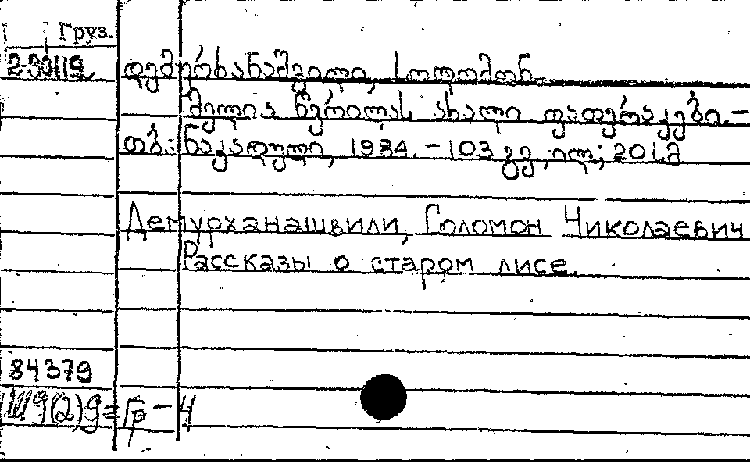 Груз.
2-30119 დემურხანაშვილი, სოლომონ.
მელია წვრილას ახალი ფათერაკები.–
თბ: ნაკადული, 1984. – 103 გვ; ილ; 20სმ
Демурханашвили, Соломон Николаевич
Рассказы о старом лисе.
84379
(2)9=Гр – 4